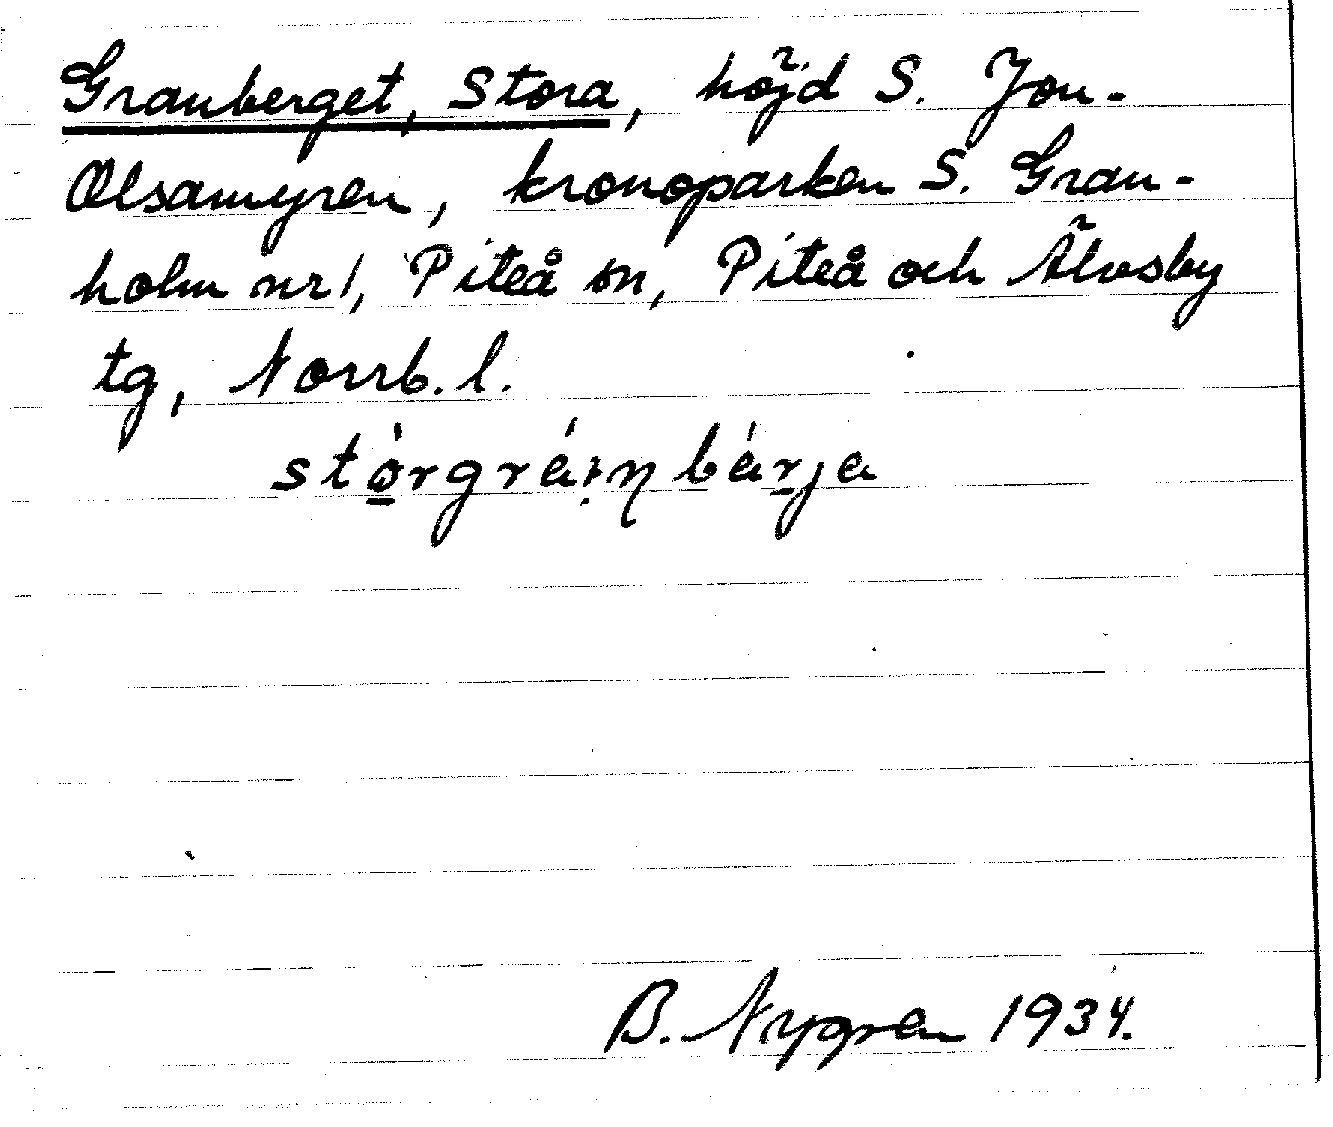 Granberget, Stora, höjd S. Jon-
Olsamyren, kronoparken S. Gran-
holm nr 1, Piteå sn, Piteå och Älvsby
tg, Norrb. l.
B. Nygren 1934.